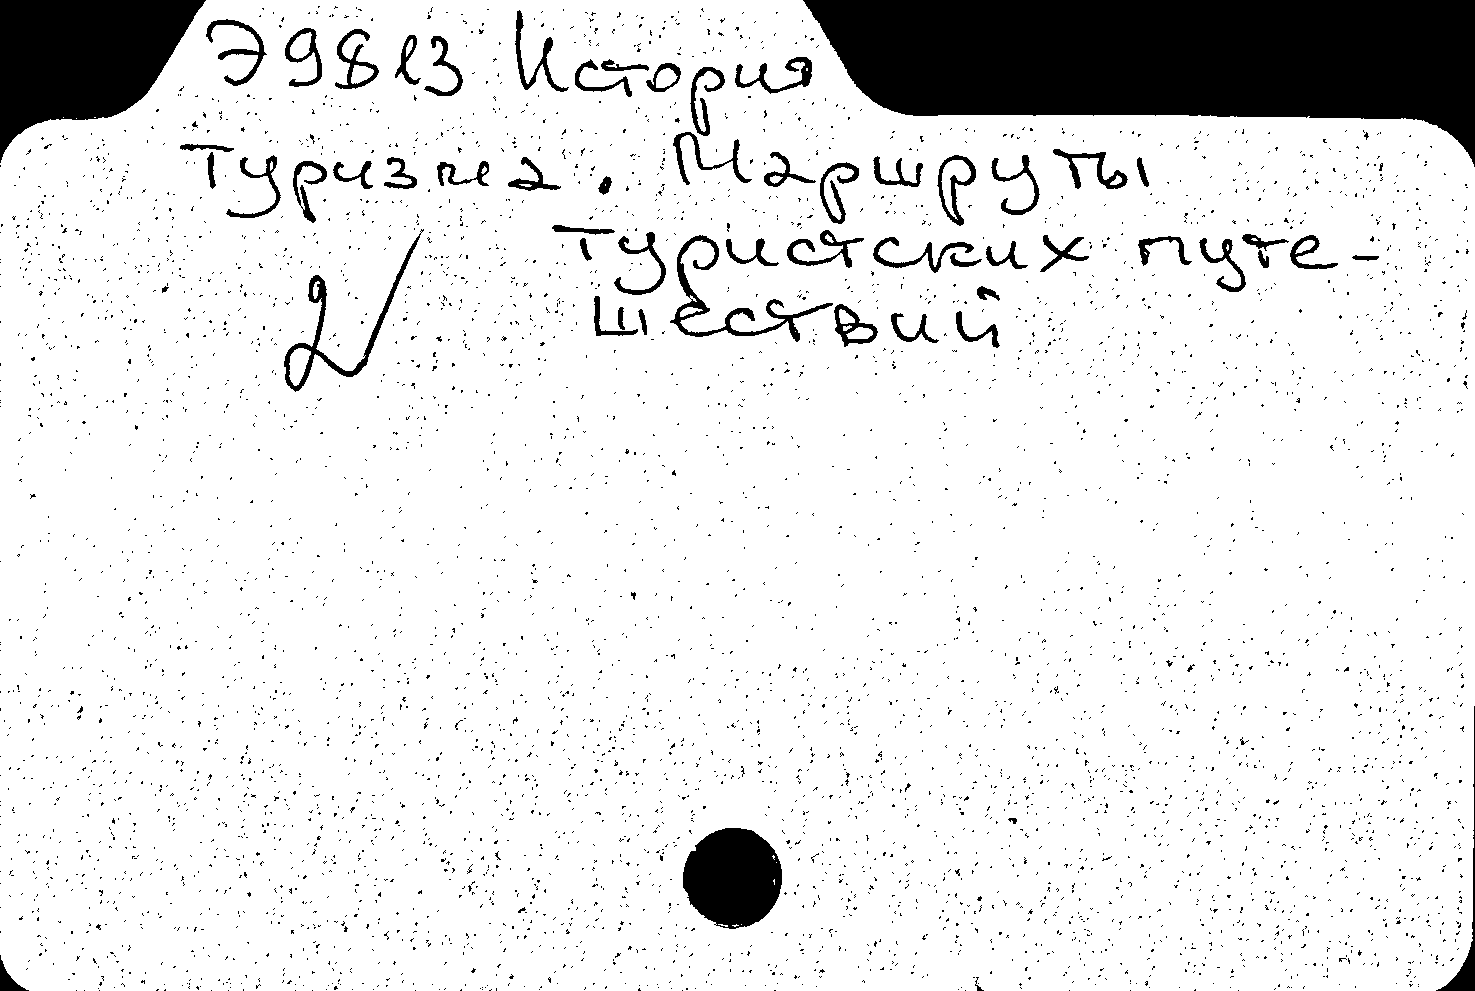 Э98 l3 История
туризма. Маршруты
туристских путе-
шествий